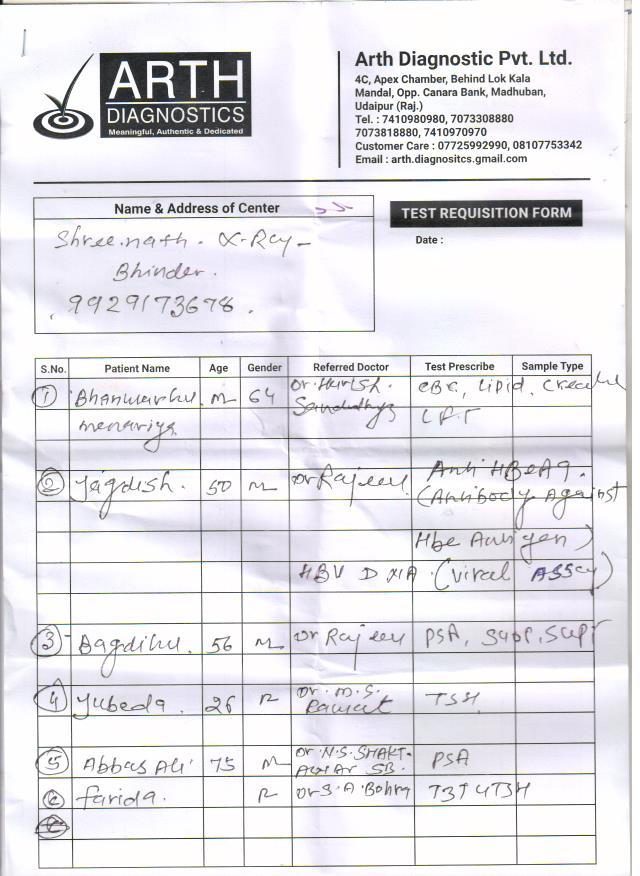 ARTH
DIAGNOSTICS
Meaningful, Authentic & Dedicated
Arth Diagnostic Pvt. Ltd.
4C, Apex Chamber, Behind Lok Kala
Mandal, Opp. Canara Bank, Madhuban,
Udaipur (Raj.)
Tel. : 7410980980, 7073308880
7073818880, 7410970970
Customer Care : 07725992990, 08107753342
Email : arth.diagnositcs.gmail.com
Name & Address of Center
Shreenath. X-Ray -
Bhinder.
9929173678.
TEST REQUISITION FORM
Date :
S.No. Patient Name Age Gender Referred Doctor Test Prescribe Sample Type
1 M 64 Dr. Harish. CBC, Lipid,
menariya LFT
2 Jagdish. 50 M Dr Rajeev Anti HBeAg.
(Antibody Against
Hbe Antigen)
HBV DNA (Viral ASSay)
3 56 M Dr Rajeev PSA,
4 Jubeda 26 Dr. M.S. TSH
Rawat
5 Abbas Ali 75 M Dr. N.S. SHAKT- PSA
SB.
Farida. Dr S.A. Bohra T3T4TSH